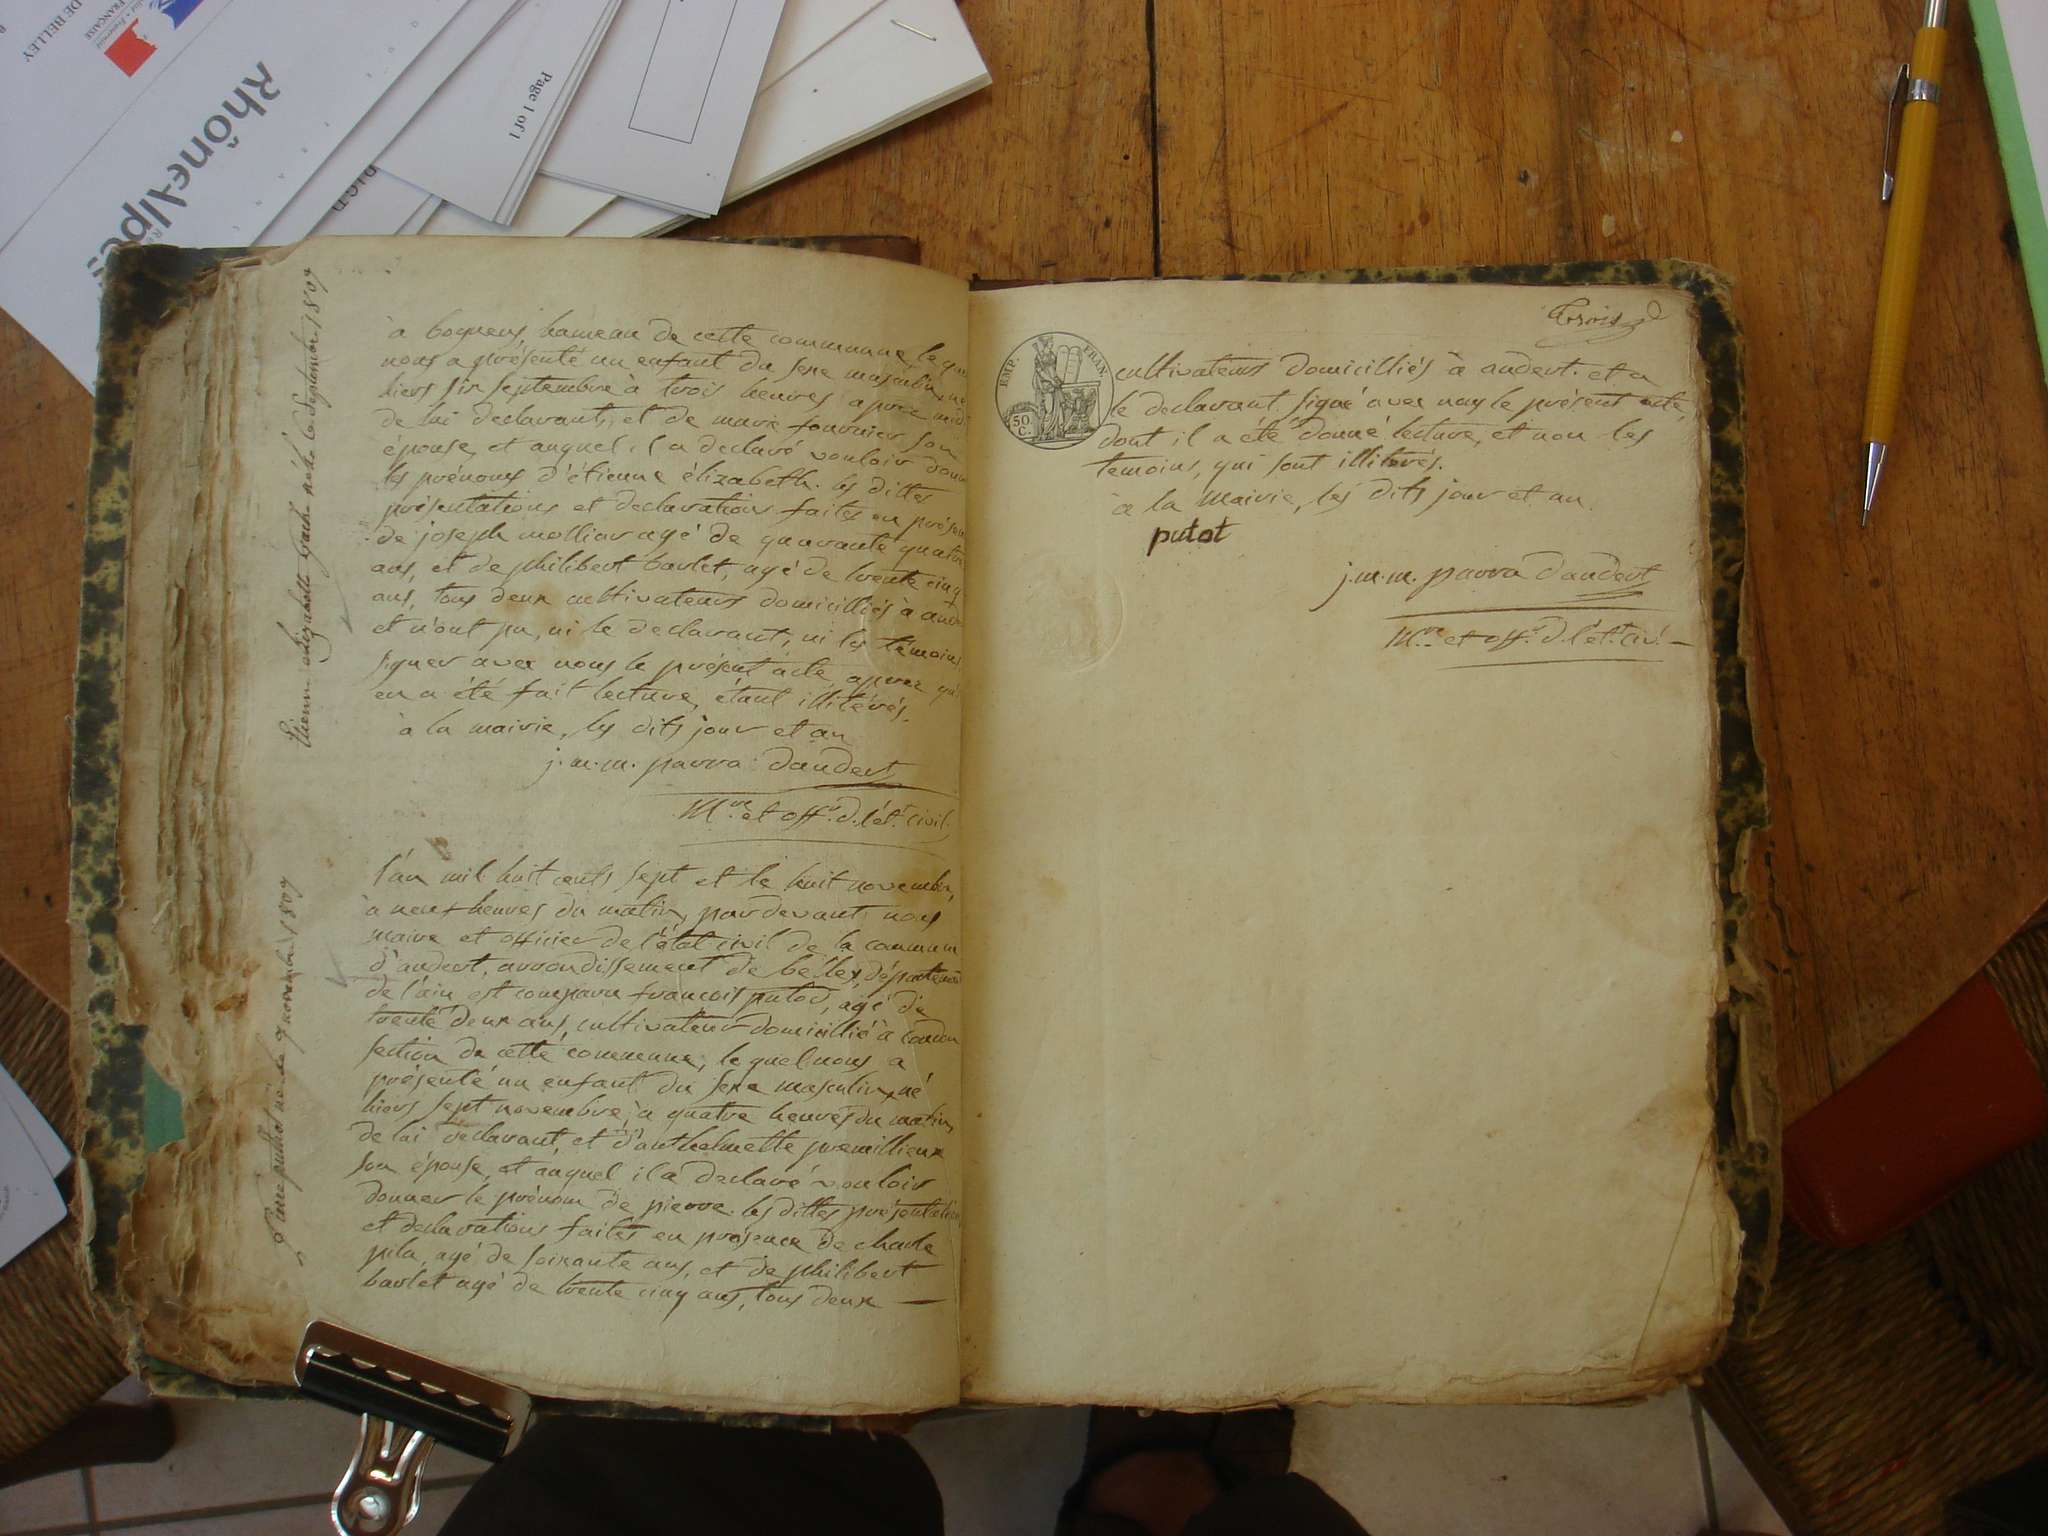 DE BELLEY
FRANÇAISE
RhôneAlpes
Page 1 of 1
Etienne elizabeth né le 6 septembre 1807
à boyneus, hameau de cette commune le quel
nous a présenté un enfant du sexe masculin, né
hiers six septembre à trois heures apres midi
de lui declarant, et de marie fournier son
épouse, et auquel il a declaré vouloir donner
les prénoms d'étienne élizabeth. les dittes
présentations et declaration faites en présence
de joseph molliar agé de quarante quatre
ans, et de philibert barlet, agé de trente cinq
ans, tous deux cultivateurs domicilliés à andert
et n'ont pu, ni le declarant, ni les témoins
signer avec nous le présent acte, aprez qu'il
en a été fait lecture, étant illiterés.
à la mairie, les dits jour et an
j. m. m. parra d'andert
M.re et off.r d. l'ét.t civil.
pierre putod né le 7 novembre 1807
l'an mil huit cents sept et le huit novembre,
à neuf heures du matin, pardevant nous
maire et officier de l'état civil de la commune
d'andert, arrondissement de belley, département
de l'ain est comparu francois putod, agé de
trente deux ans, cultivateur domicillié à condon
section de cette commune, le quel nous a
présenté un enfant du sexe masculin, né
hiers sept novembre, à quatre heures du matin,
de lui declarant, et d'anthelmette premillieux
son épouse, et auquel il a declaré vouloir
donner le prénom de pierre. les dittes présentation
et declarations faites en présence de charle
pila, agé de soixante ans, et de philibert
barlet agé de trente cinq ans, tous deux
trois
EMP. FRAN.
50 C.
cultivateurs domicilliés à andert. et a
le declarant signé avec nous le présent acte,
dont il a été donné lecture, et non les
temoins, qui sont illiterés.
à la Mairie, les dits jour et an.
putot
j. m. m. parra d'andert
M.re et off.r d. l'ét.t civ.l